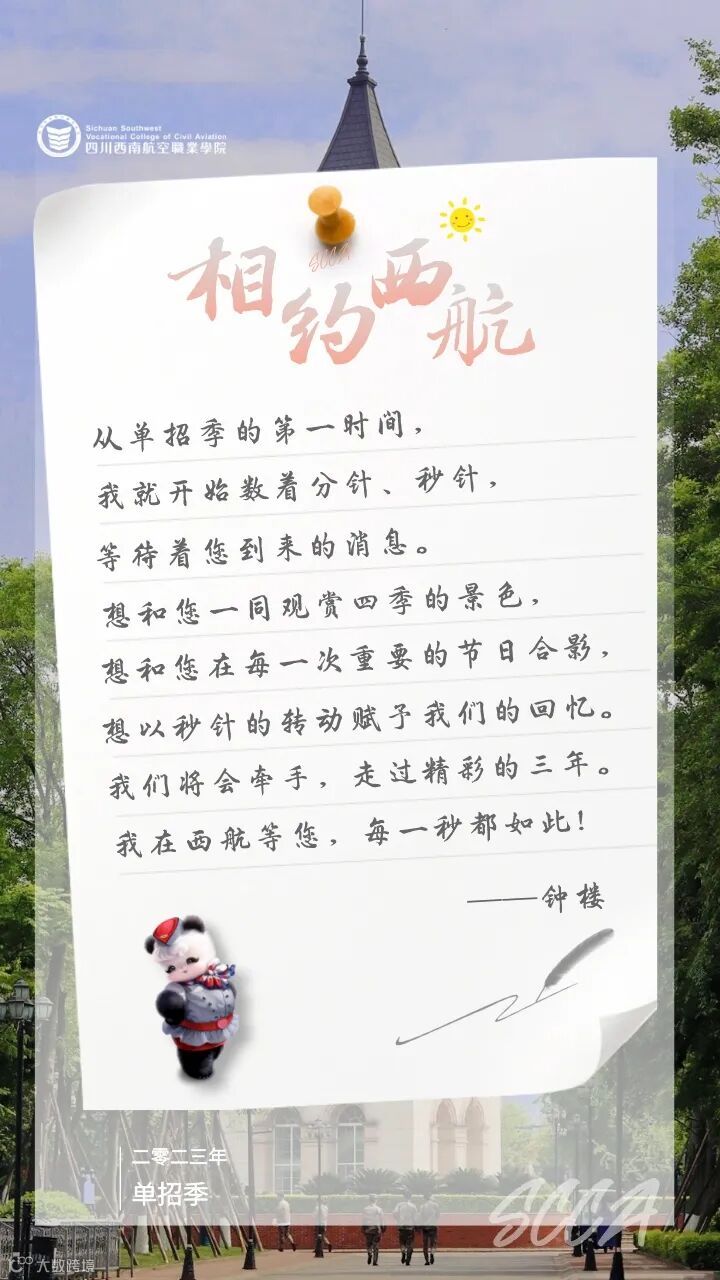 Sichuan Southwest
Vocational College of Civil Aviation
四川西南航空職業學院
SCCA
相约西航
从单招季的第一时间，
我就开始数着分针、秒针，
等待着您到来的消息。
想和您一同观赏四季的景色，
想和您在每一次重要的节日合影，
想以秒针的转动赋予我们的回忆。
我们将会牵手，走过精彩的三年。
我在西航等您，每一秒都如此！
——钟楼
二零二三年
单招季
SCCA
大数跨境